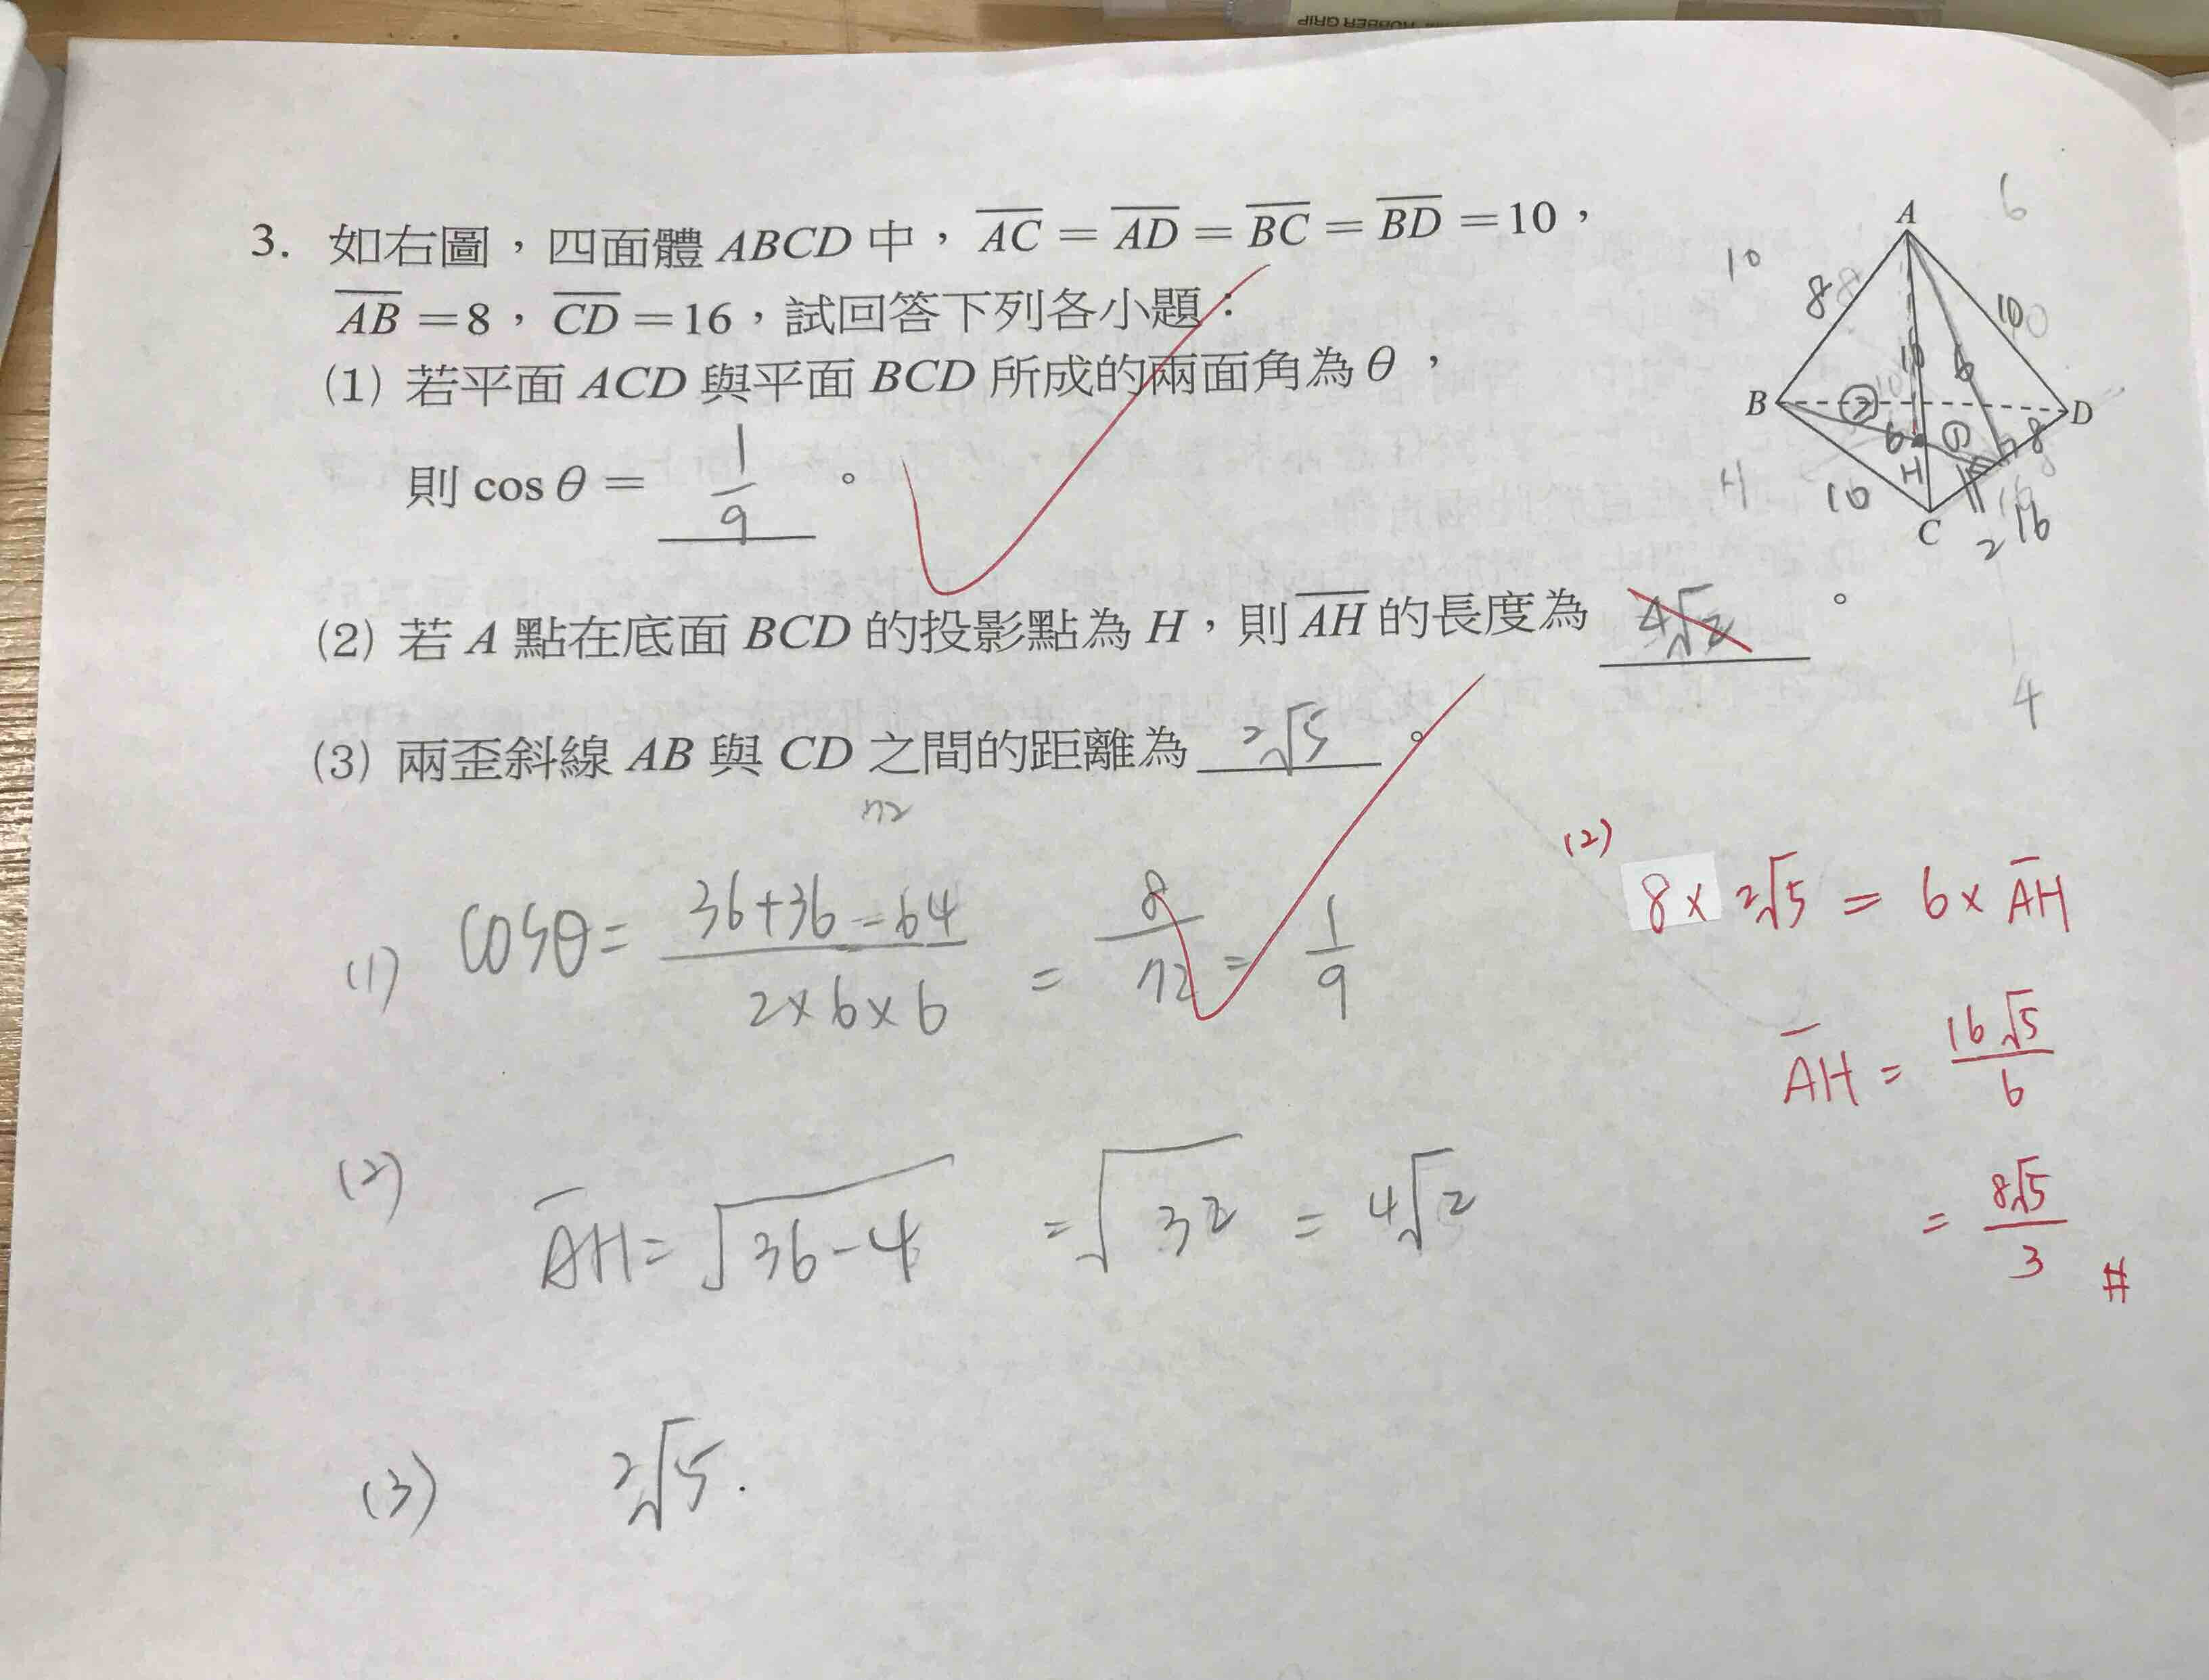 RUBBER GRIP
3. 如右圖，四面體 ABCD 中，AC = AD = BC = BD = 10，
AB = 8，CD = 16，試回答下列各小題：
(1) 若平面 ACD 與平面 BCD 所成的兩面角為 θ，
則 cos θ = 1/9 。
(2) 若 A 點在底面 BCD 的投影點為 H，則 AH 的長度為 4√2 。
(3) 兩歪斜線 AB 與 CD 之間的距離為 2√5 。
72
A
6
10
8
10
10
6
B
D
6
8
H
H
10
C
2
16
4
(1) cosθ = (36+36-64)/(2×6×6) = 8/72 = 1/9
(2) AH = √(36-4) = √32 = 4√2
(3) 2√5.
(2)
8 × 2√5 = 6 × AH
AH = 16√5/6
= 8√5/3 #